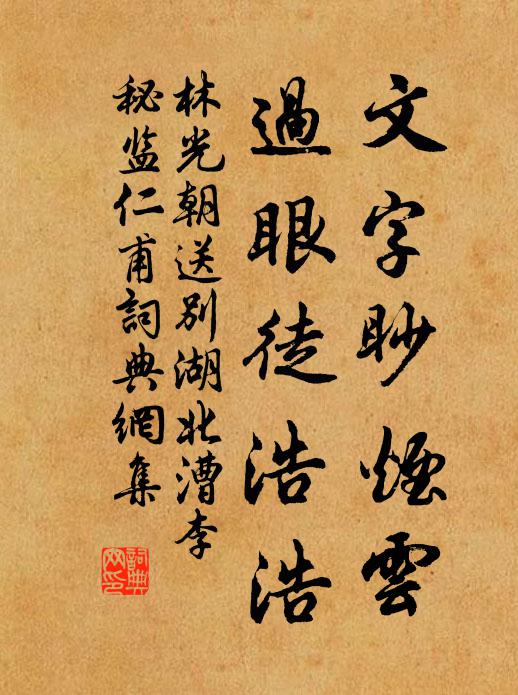 文字眇煙雲
過眼徒浩浩
林光朝送别湖北漕李
秘监仁甫詞典網集
詞典网印